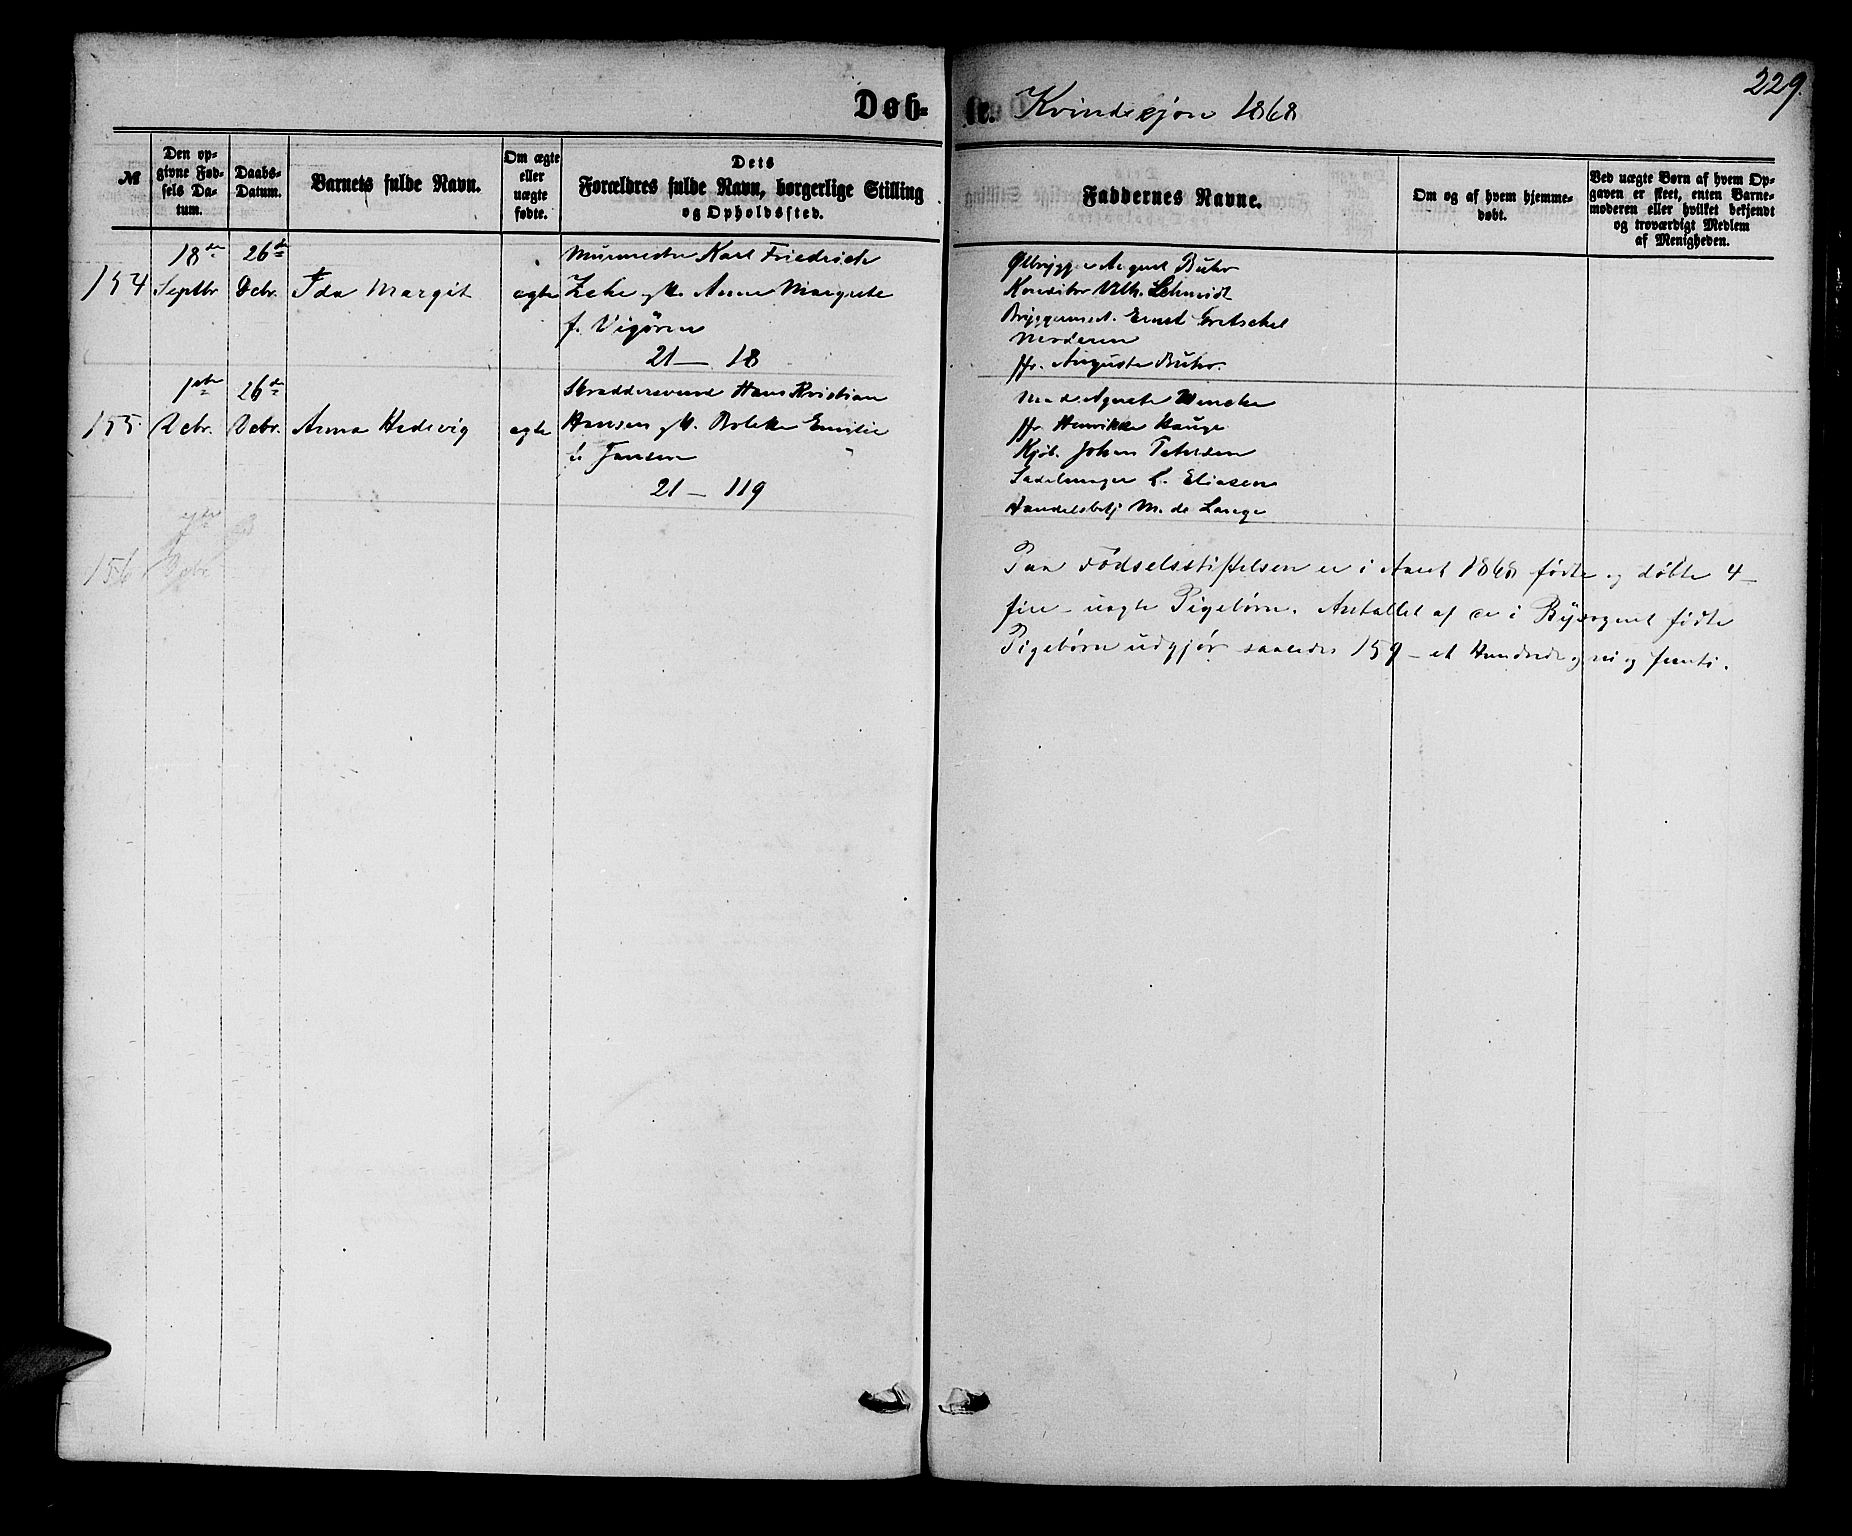 229.
Døb-
te. Kvindekjøn 1868
№
Den op-
givne Fød-
sels Da-
tum.
Daabs-
Datum.
Barnets fulde Navn.
Om ægte
eller
uægte
fødte.
Dets
Forældres fulde Navn, borgerlige Stilling
og Opholdssted.
Faddernes Navne.
Om og af hvem hjemme-
døbt.
Ved uægte Børn af hvem Op-
gaven er skeet, enten Barne-
moderen eller hvilket bekjendt
og troværdigt Medlem
af Menigheden.
154
18de
Septbr
26de
Decbr.
Ida Margit
ægte
Murmester Karl Friedrich
Zeke og H. Anne Margrete
f. Vigören
21 – 18
Ølbrygger August Buhr
Konditor Vilh. Schmidt
Bryggermest. Ernst Gretschel
Moderen
Fr. Auguste Buhr.
155.
1ste
Decbr.
26de
Decbr.
Anna Hedevig
ægte
Skræddersvend Hans Kristian
Hansen og H. Bolette Emilie
f. Jansen
21 – 119
Mad. Agnete Wencke
Fr. Henrikke Hauge
Kjøb. Johan Petersen
Sadelmager L. Eliasen
Handelsbetj M. de Lange
156
Decbr
Paa Födselsstiftelsen er i Aaret 1868 fødte og døbte 4 –
fire – uægte Pigebørn. Antallet af de i Bysognet fødte
Pigebørn udgjør saaledes 159 – et Hundrede og ni og femti.